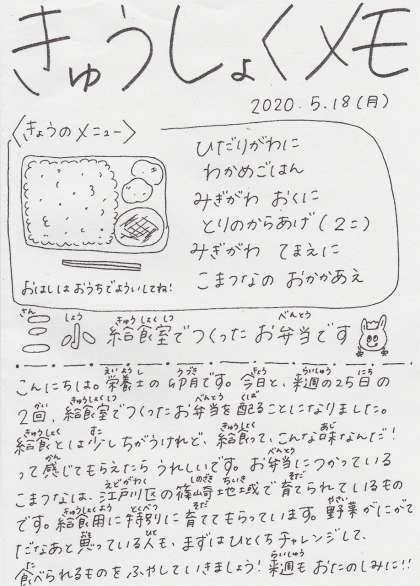 きゅうしょくメモ
2020.5.18(月)
〈きょうのメニュー〉
ひだりがわに
わかめごはん
みぎがわ おくに
とりのからあげ(2こ)
みぎがわ てまえに
こまつなの おかかあえ
おはしは おうちでよういしてね!
三小 給食室でつくった お弁当です
こんにちは。栄養士の 卯月です。今日と、来週の25日の
2回、給食室でつくったお弁当を配ることになりました。
給食とは少しちがうけれど、給食って、こんな味なんだ!
って感じてもらえたら うれしいです。お弁当につかっている
こまつなは、江戸川区の篠崎地域で育てられているもの
です。給食用に特別に育ててもらっています。野菜がにがて
だなあと思っている人も、まずはひとくちチャレンジして、
食べられるものをふやしていきましょう!来週もおたのしみに!!